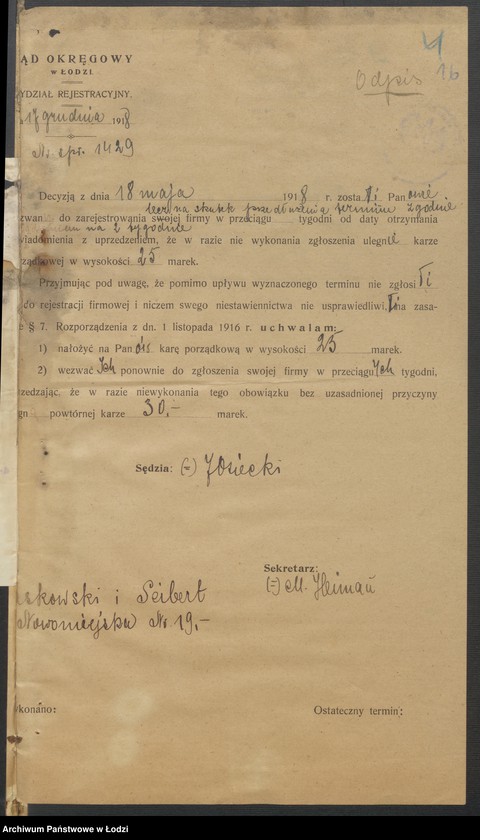 4
Odpis 16
ĄD OKRĘGOWY
w ŁODZI
YDZIAŁ REJESTRACYJNY.
17 grudnia 1918
№ spr. 1429
Decyzją z dnia 18 maja 1918 r. zosta li Pan owie
lecz na skutek przedłużenia terminu zgodnie
zwan do zarejestrowania swojej firmy w przeciągu tygodni od daty otrzymania
na 2 tygodnie
wiadomienia z uprzedzeniem, że w razie nie wykonania zgłoszenia ulegnie karze
rządkowej w wysokości 25 marek.
Przyjmując pod uwagę, że pomimo upływu wyznaczonego terminu nie zgłosi li
do rejestracji firmowej i niczem swego niestawiennictwa nie usprawiedliwi, li na zasa-
e § 7. Rozporządzenia z dn. 1 listopada 1916 r. uchwalam:
1) nałożyć na Pan ów karę porządkową w wysokości 25 marek.
2) wezwać Ich ponownie do zgłoszenia swojej firmy w przeciągu tygodni,
rzedzając, że w razie niewykonania tego obowiązku bez uzasadnionej przyczyny
gn powtórnej karze 30,- marek.
Sędzia: (=) Osiecki
Sekretarz:
(=) M.
skowski i Seibert
Nowomiejska № 19,-
ykonano: Ostateczny termin:
Archiwum Państwowe w Łodzi